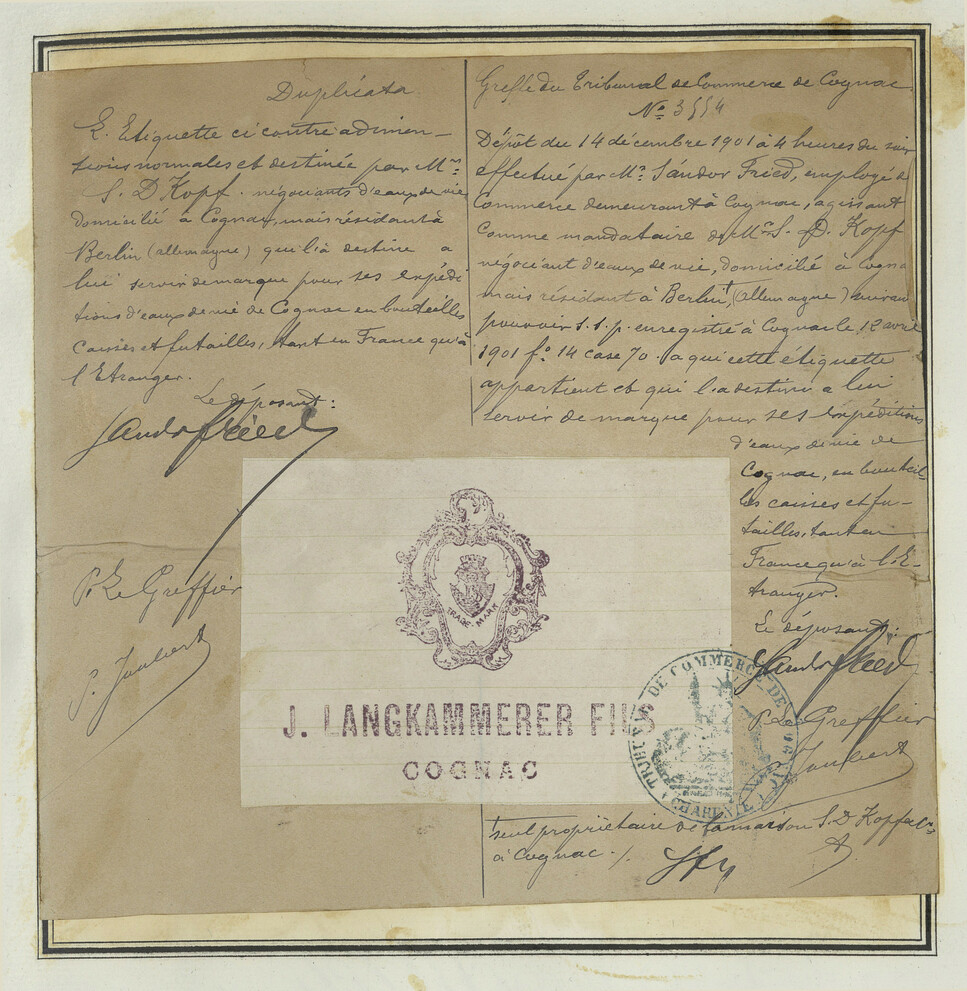 Duplicata
L'Etiquette ci contre a dimen-
sions normales et destinée par Mr
S. D Kopf. négociants d'eaux de vie
domicilié à Cognac, mais résidant à
Berlin (allemagne) qui l'a destine a
lui servir de marque pour ses expédi
tions d'eaux de vie de Cognac en bouteilles
caisses et futailles, tant en France qu'à
l'Etranger.
Le déposant:
Sandor Fried
P. Le Greffier
P. Joubert
Greffe du Tribunal de Commerce de Cognac
No 3554
Dépôt du 14 décembre 1901 à 4 heures du soir
effectué par Mr Sándor Fried, employé de
Commerce demeurant à Cognac, agissant
comme mandataire de Mr S. D. Kopf
négociant d'eaux de vie, domicilié à Cogna
mais résidant à Berlin, (allemagne) suivan
pouvoir s.s.p. enregistré à Cognac le 12 avril
1901 fo 14 case 70. a qui cette étiquette
appartient et qui l'a destine a lui
servir de marque pour ses expéditions
d'eaux de vie de
Cognac, en bouteil
les caisses et fu-
tailles, tant en
France qu'à l'E-
tranger.
Le déposant:
Sandor Fried
P. Le Greffier
Joubert
TRADE-MARK
J. LANGKAMMERER FILS
COGNAC
TRIBUNAL DE COMMERCE DE COGNAC
CHARENTE
seul propriétaire de la maison S. D Kopf & Cie
à Cognac ./.